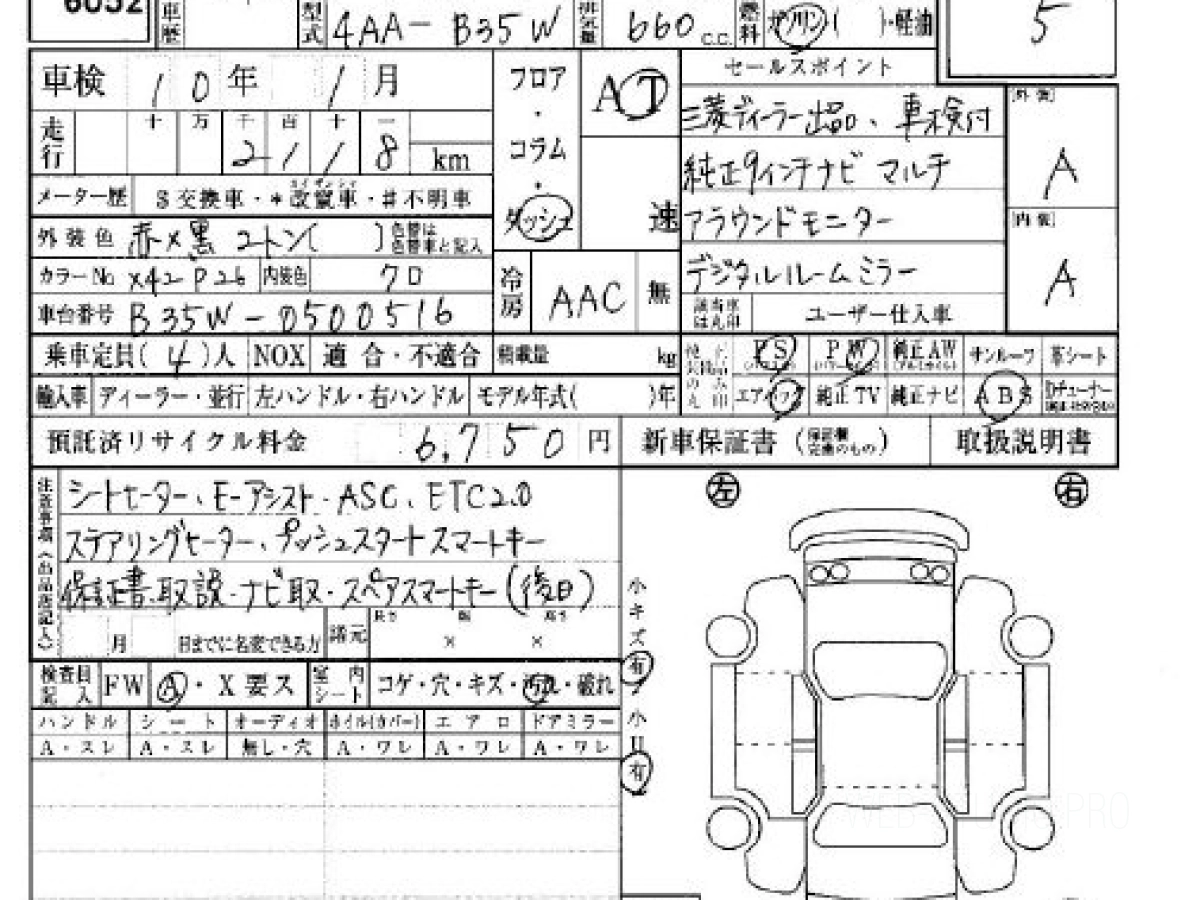 6052
車歴
型式 4AA-B35W
排気量 660 c.c.
燃料 ガソリン( )・軽油
5
車検 10年 1月
フロア・コラム・ダッシュ
AT
速
セールスポイント
三菱ディーラー出品、車検付
純正9インチナビ マルチ
アラウンドモニター
デジタルルームミラー
[外装] A
[内装] A
走行 十 万 千 百 十 一
2118 km
メーター歴 $交換車・*改竄車・#不明車
外装色 赤×黒 2トン( ) 色替は色替車と記入
カラーNo X42 P26 内装色 クロ
冷房 AAC 無
車台番号 B35W-0500516
該当車は丸印 ユーザー仕入車
乗車定員(4)人 NOX 適合・不適合 積載量 kg
PS PW 純正AW サンルーフ 革シート
輸入車 ディーラー・並行 左ハンドル・右ハンドル モデル年式( )年
エアバッグ 純正TV 純正ナビ ABS
預託済リサイクル料金 6,750円
新車保証書(保証欄完備のもの) 取扱説明書
注意事項(出品店記入)
シートヒーター、E-アシスト・ASC、ETC2.0
ステアリングヒーター、プッシュスタートスマートキー
保証書・取説・ナビ取・スペアスマートキー(後日)
月 日までに名変できる方 諸元 長さ × 幅 × 高さ
検査員記入 FW A・X要ス 室内シート コゲ・穴・キズ・汚れ・破れ
ハンドル シート オーディオ ホイル(カバー) エアロ ドアミラー
A・スレ A・スレ 無し・穴 A・ワレ A・ワレ A・ワレ
左 右
小キズ有
小U有